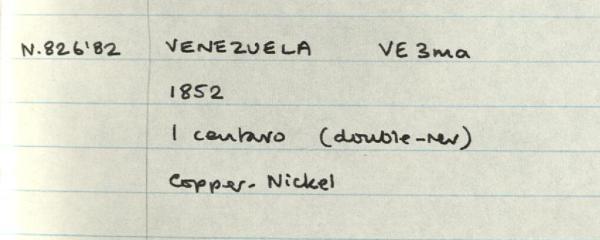 N.826'82 VENEZUELA VE 3ma
1852
1 centavo (double-rev)
Copper-Nickel